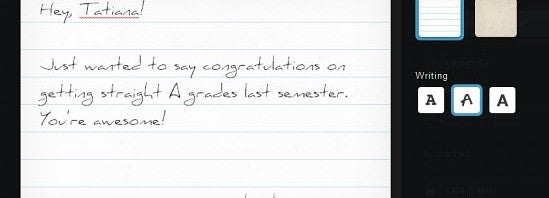 Hey, Tatiana!
Just wanted to say congratulations on
getting straight A grades last semester.
You're awesome!
Writing
A A A